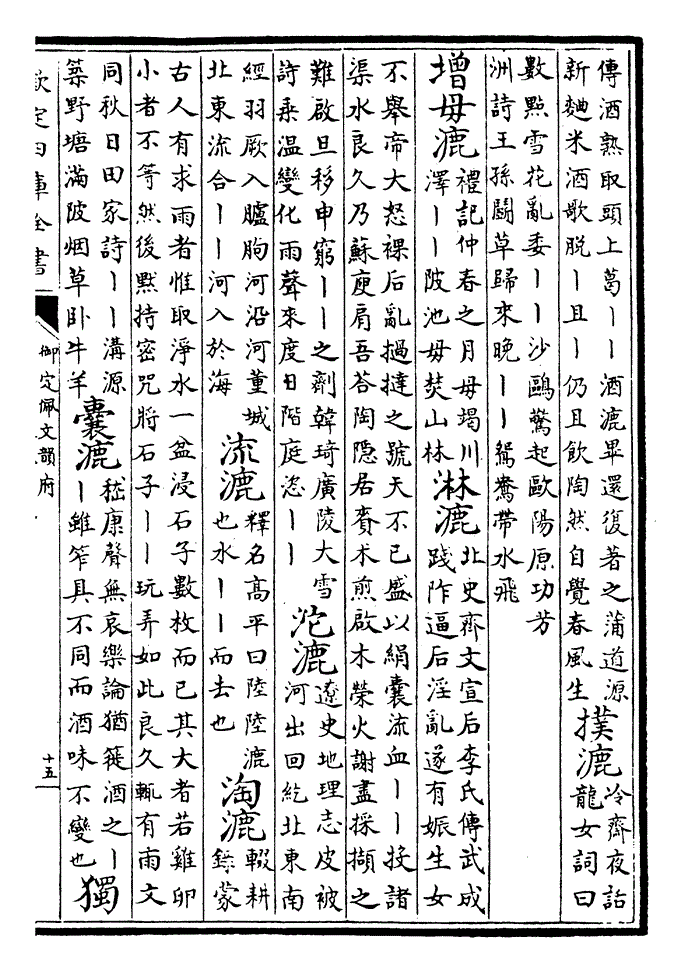 傳酒熟取頭上葛丨丨酒漉畢還復著之蒲道源
新麯米酒歌脱丨且丨仍且飲陶然自覺春風生
撲漉
冷齋夜話
龍女詞曰
數㸃雪花亂委丨丨沙鷗驚起歐陽原功芳
洲詩王孫鬭草歸來晚丨丨鴛鴦帶水飛
增毋漉
禮記仲春之月毋竭川
澤丨丨陂池毋焚山林
淋漉
北史齊文宣后李氏傳武成
踐阼逼后淫亂遂有娠生女
不舉帝大怒裸后亂撾撻之號天不已盛以絹囊流血丨丨投諸
渠水良久乃蘇庾肩吾荅陶隠居賚术煎啟木榮火謝盡採擷之
難啟旦移申窮丨丨之劑韓琦廣陵大雪
詩乗温變化雨聲來度日階庭恣丨丨
沱漉
遼史地理志皮被
河出回紇北東南
經羽厥入臚朐河沿河董城
北東流合丨丨河入於海
流漉
釋名高平曰陸陸漉
也水丨丨而去也
淘漉
輟耕
錄蒙
古人有求雨者惟取淨水一盆浸石子數枚而已其大者若雞卵
小者不等然後黙持密咒將石子丨丨玩弄如此良久輒有雨文
同秋日田家詩丨丨溝源
築野塘滿陂烟草卧牛羊
囊漉
嵇康聲無哀樂論猶簁酒之丨
丨雖笮具不同而酒味不變也
獨
欽定四庫全書
御定佩文韻府
十五